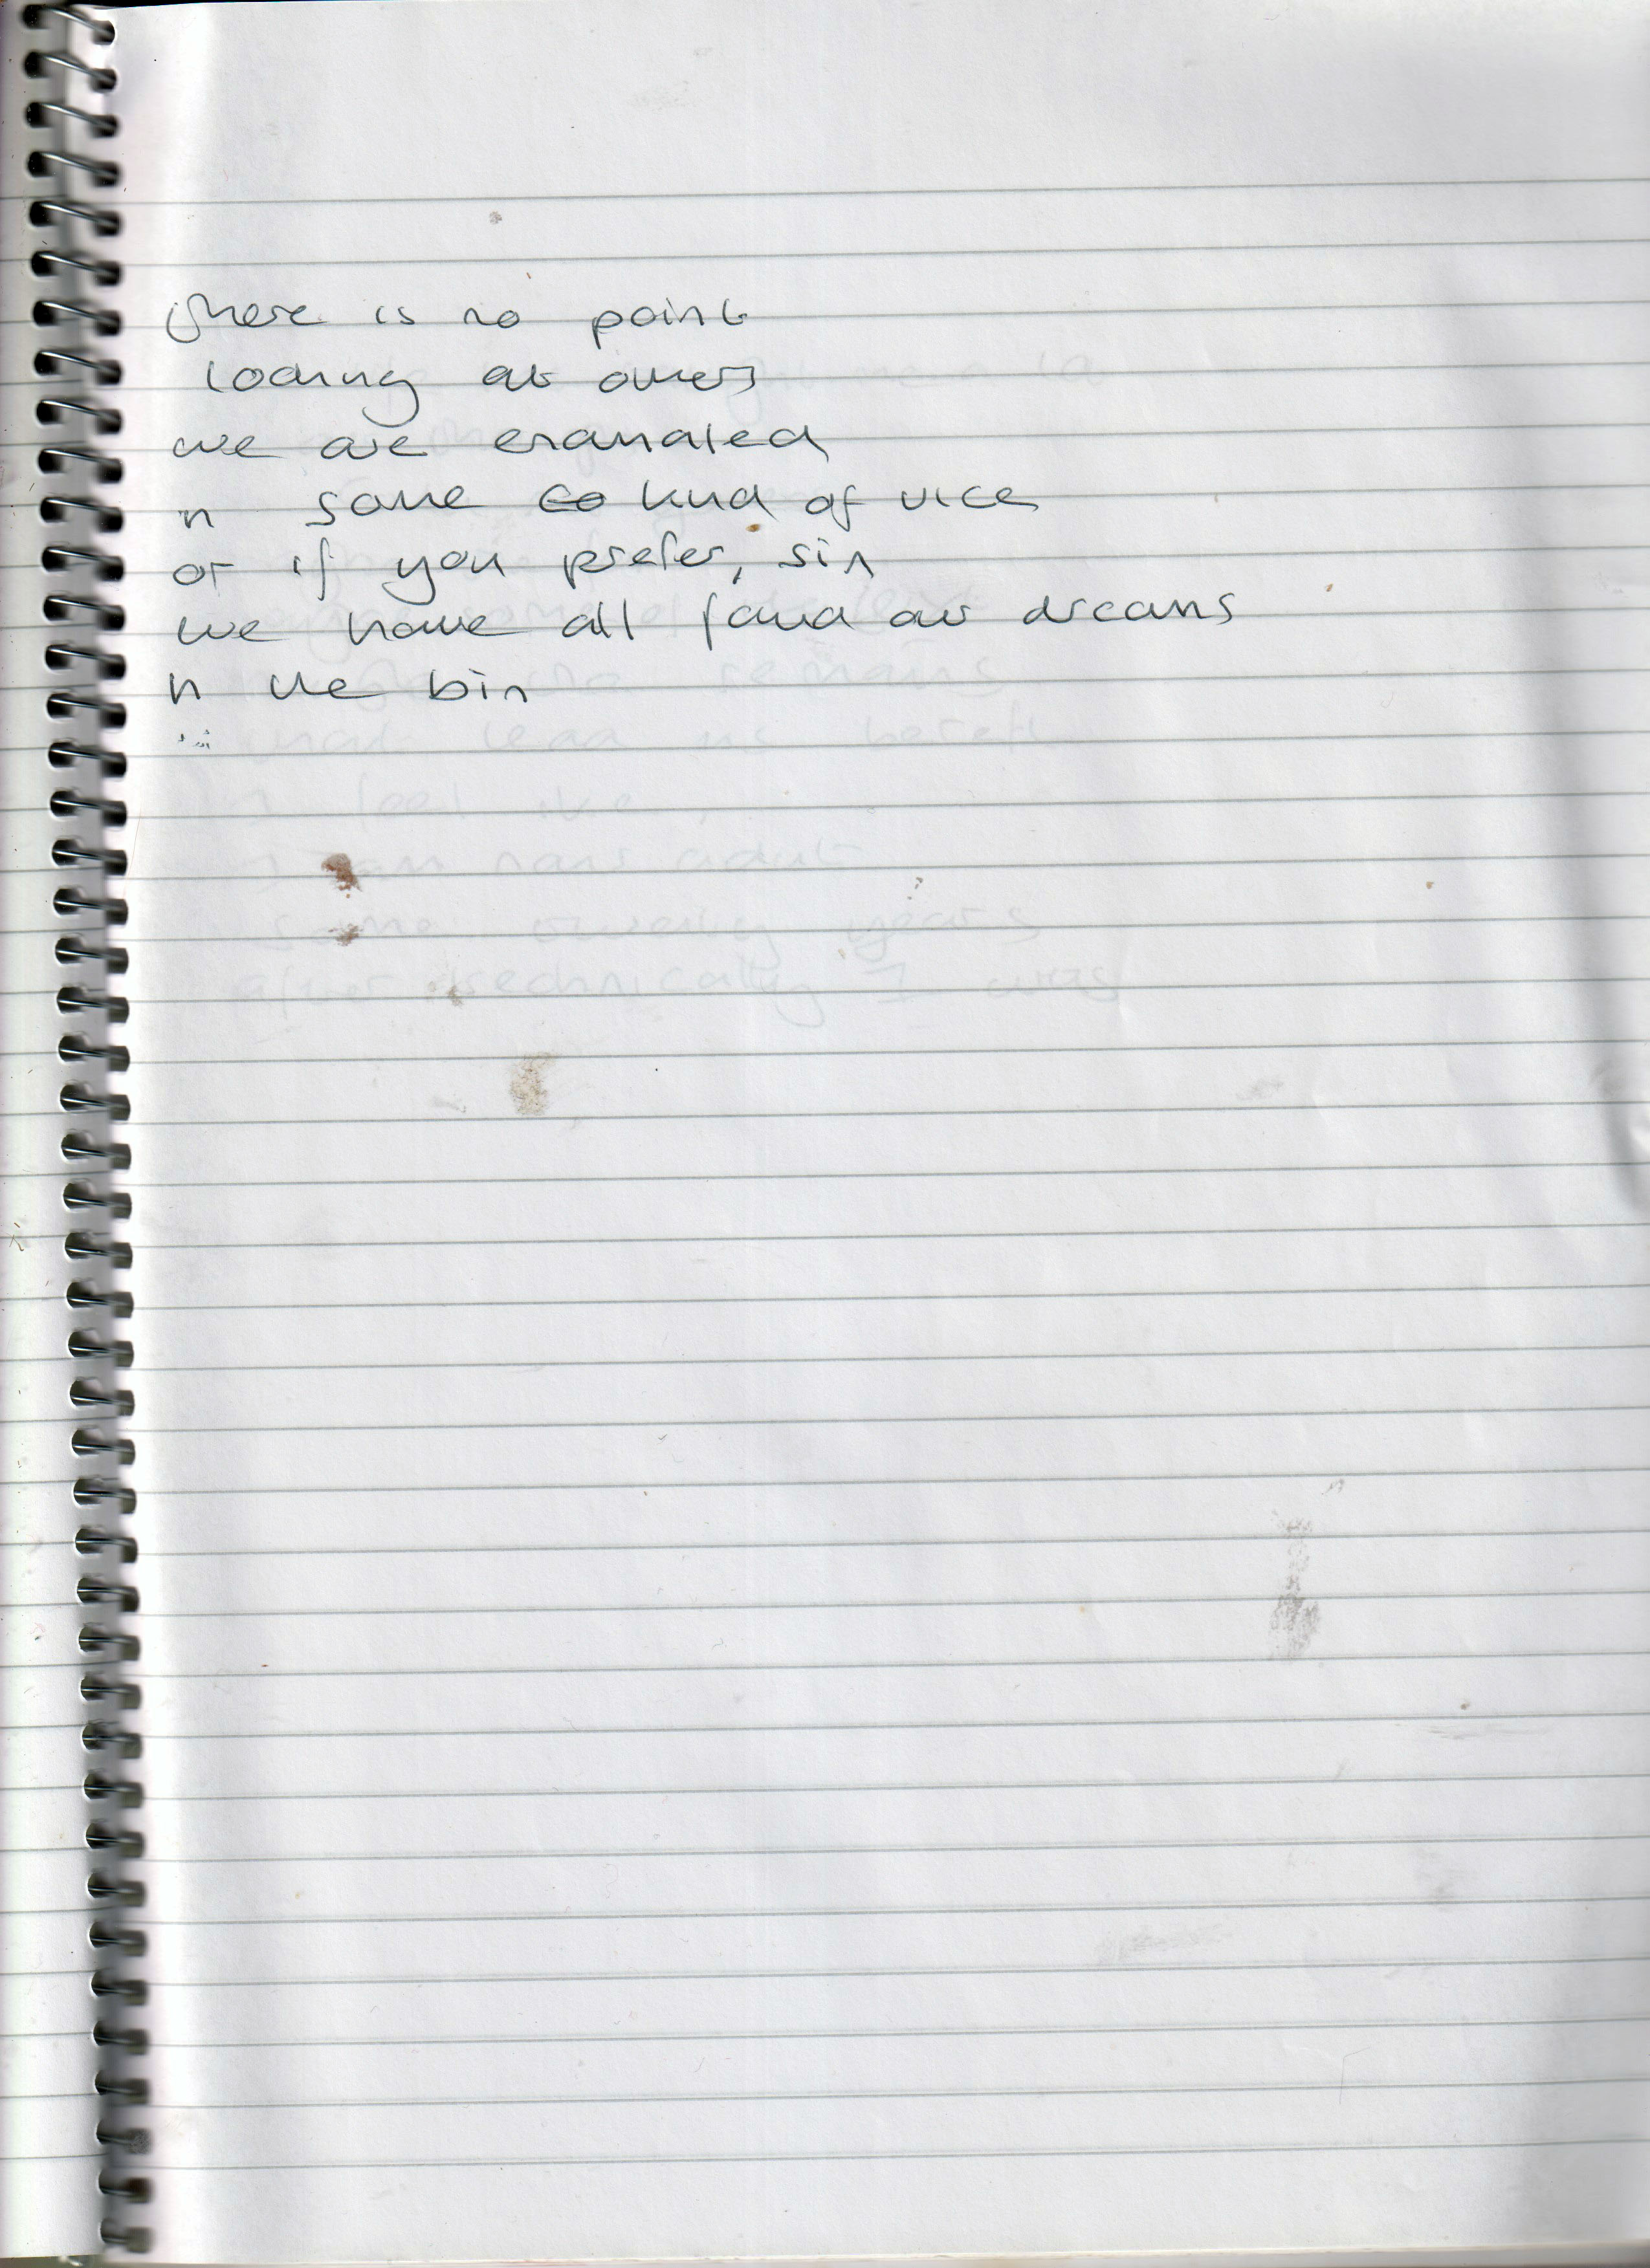 there is no point
looking at others
we are emanated
in some <del>co</del> kind of vice
or if you prefer, sin
we have all found our dreams
in the bin